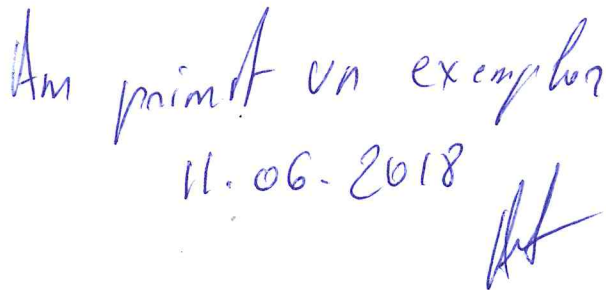 Am primit un exemplar
11.06.2018